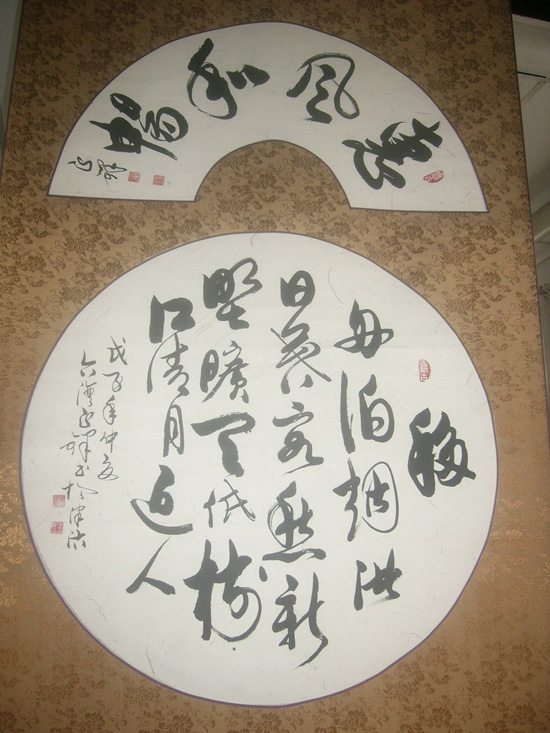 惠風和暢
移
舟泊烟渚
日暮客愁新
野曠天低樹
江清月近人
戊子年仲夏
书於津沽